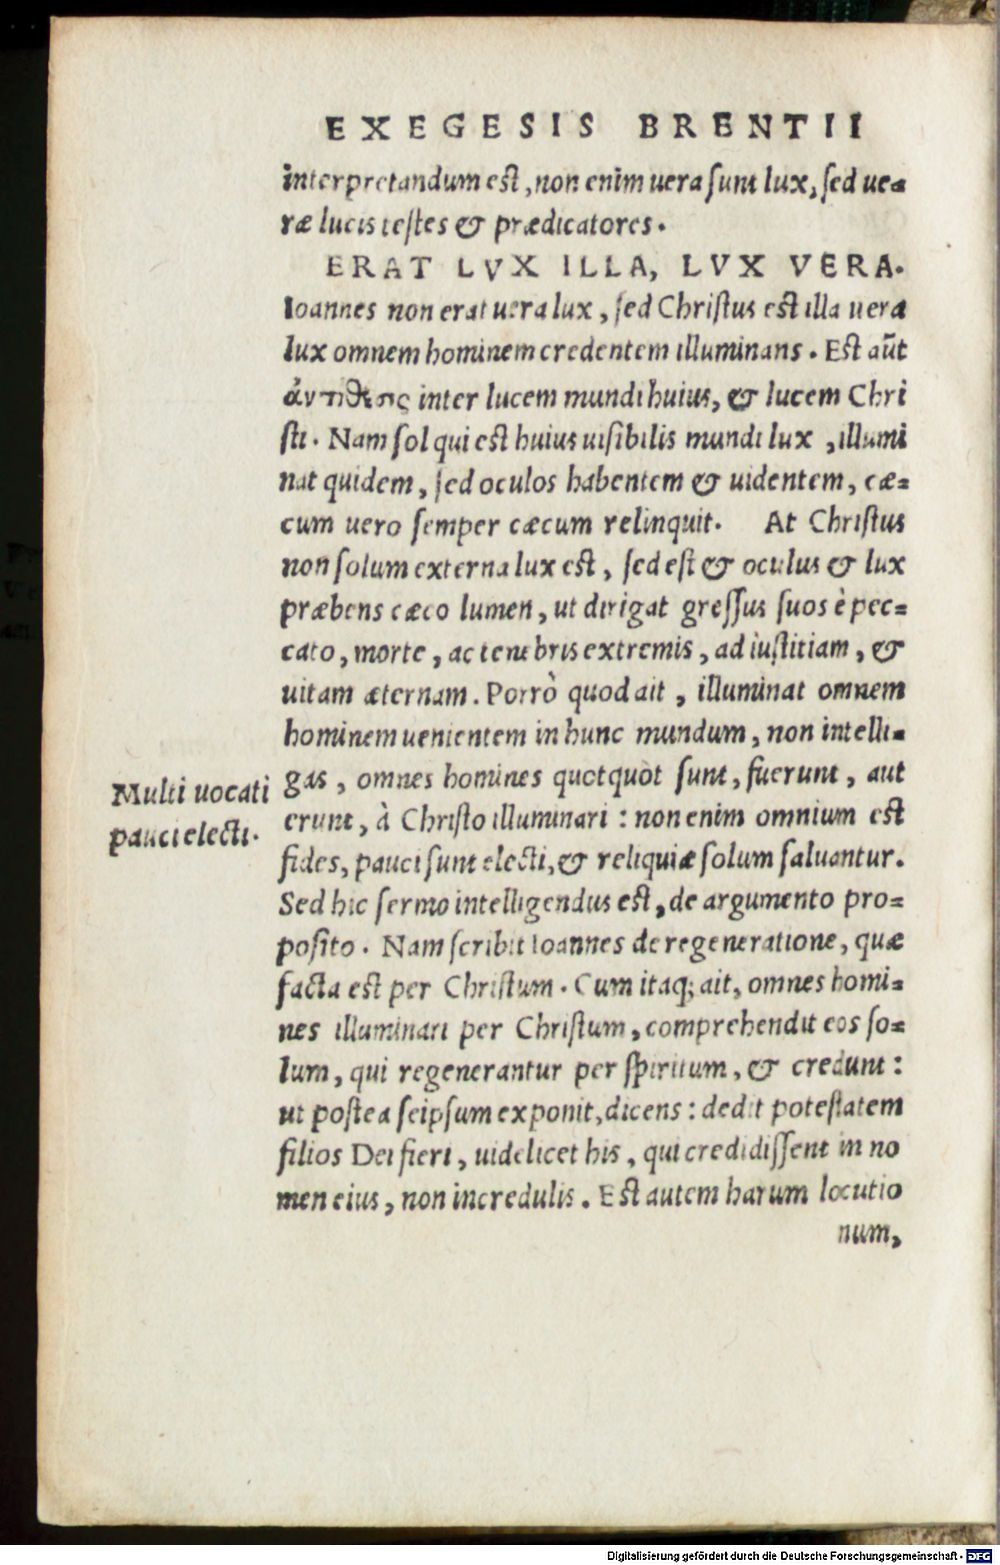 EXEGESIS BRENTII
interpretandum est, non enim uera sunt lux, sed ue=
ræ lucis testes & prædicatores.
ERAT LVX ILLA, LVX VERA.
Ioannes non erat uera lux, sed Christus est illa uera
lux omnem hominem credentem illuminans. Est aūt
ἀντίθεσις inter lucem mundi huius, & lucem Chri
sti. Nam sol qui est huius uisibilis mundi lux, illumi
nat quidem, sed oculos habentem & uidentem, cæ=
cum uero semper cæcum relinquit. At Christus
non solum externa lux est, sed est & oculus & lux
præbens cæco lumen, ut dirigat gressus suos è pec=
cato, morte, ac tenebris extremis, ad iustitiam, &
uitam æternam. Porrò quod ait, illuminat omnem
hominem uenientem in hunc mundum, non intelli=
Multi uocati
pauci electi.
gas, omnes homines quotquot sunt, fuerunt, aut
erunt, à Christo illuminari: non enim omnium est
fides, pauci sunt electi, & reliquiæ solum saluantur.
Sed hic sermo intelligendus est, de argumento pro=
posito. Nam scribit Ioannes de regeneratione, quæ
facta est per Christum. Cum itaq; ait, omnes homi=
nes illuminari per Christum, comprehendit eos so=
lum, qui regenerantur per spiritum, & credunt:
ut postea seipsum exponit, dicens: dedit potestatem
filios Dei fieri, uidelicet his, qui credidissent in no
men eius, non incredulis. Est autem harum locutio
num,
Digitalisierung gefördert durch die Deutsche Forschungsgemeinschaft - DFG